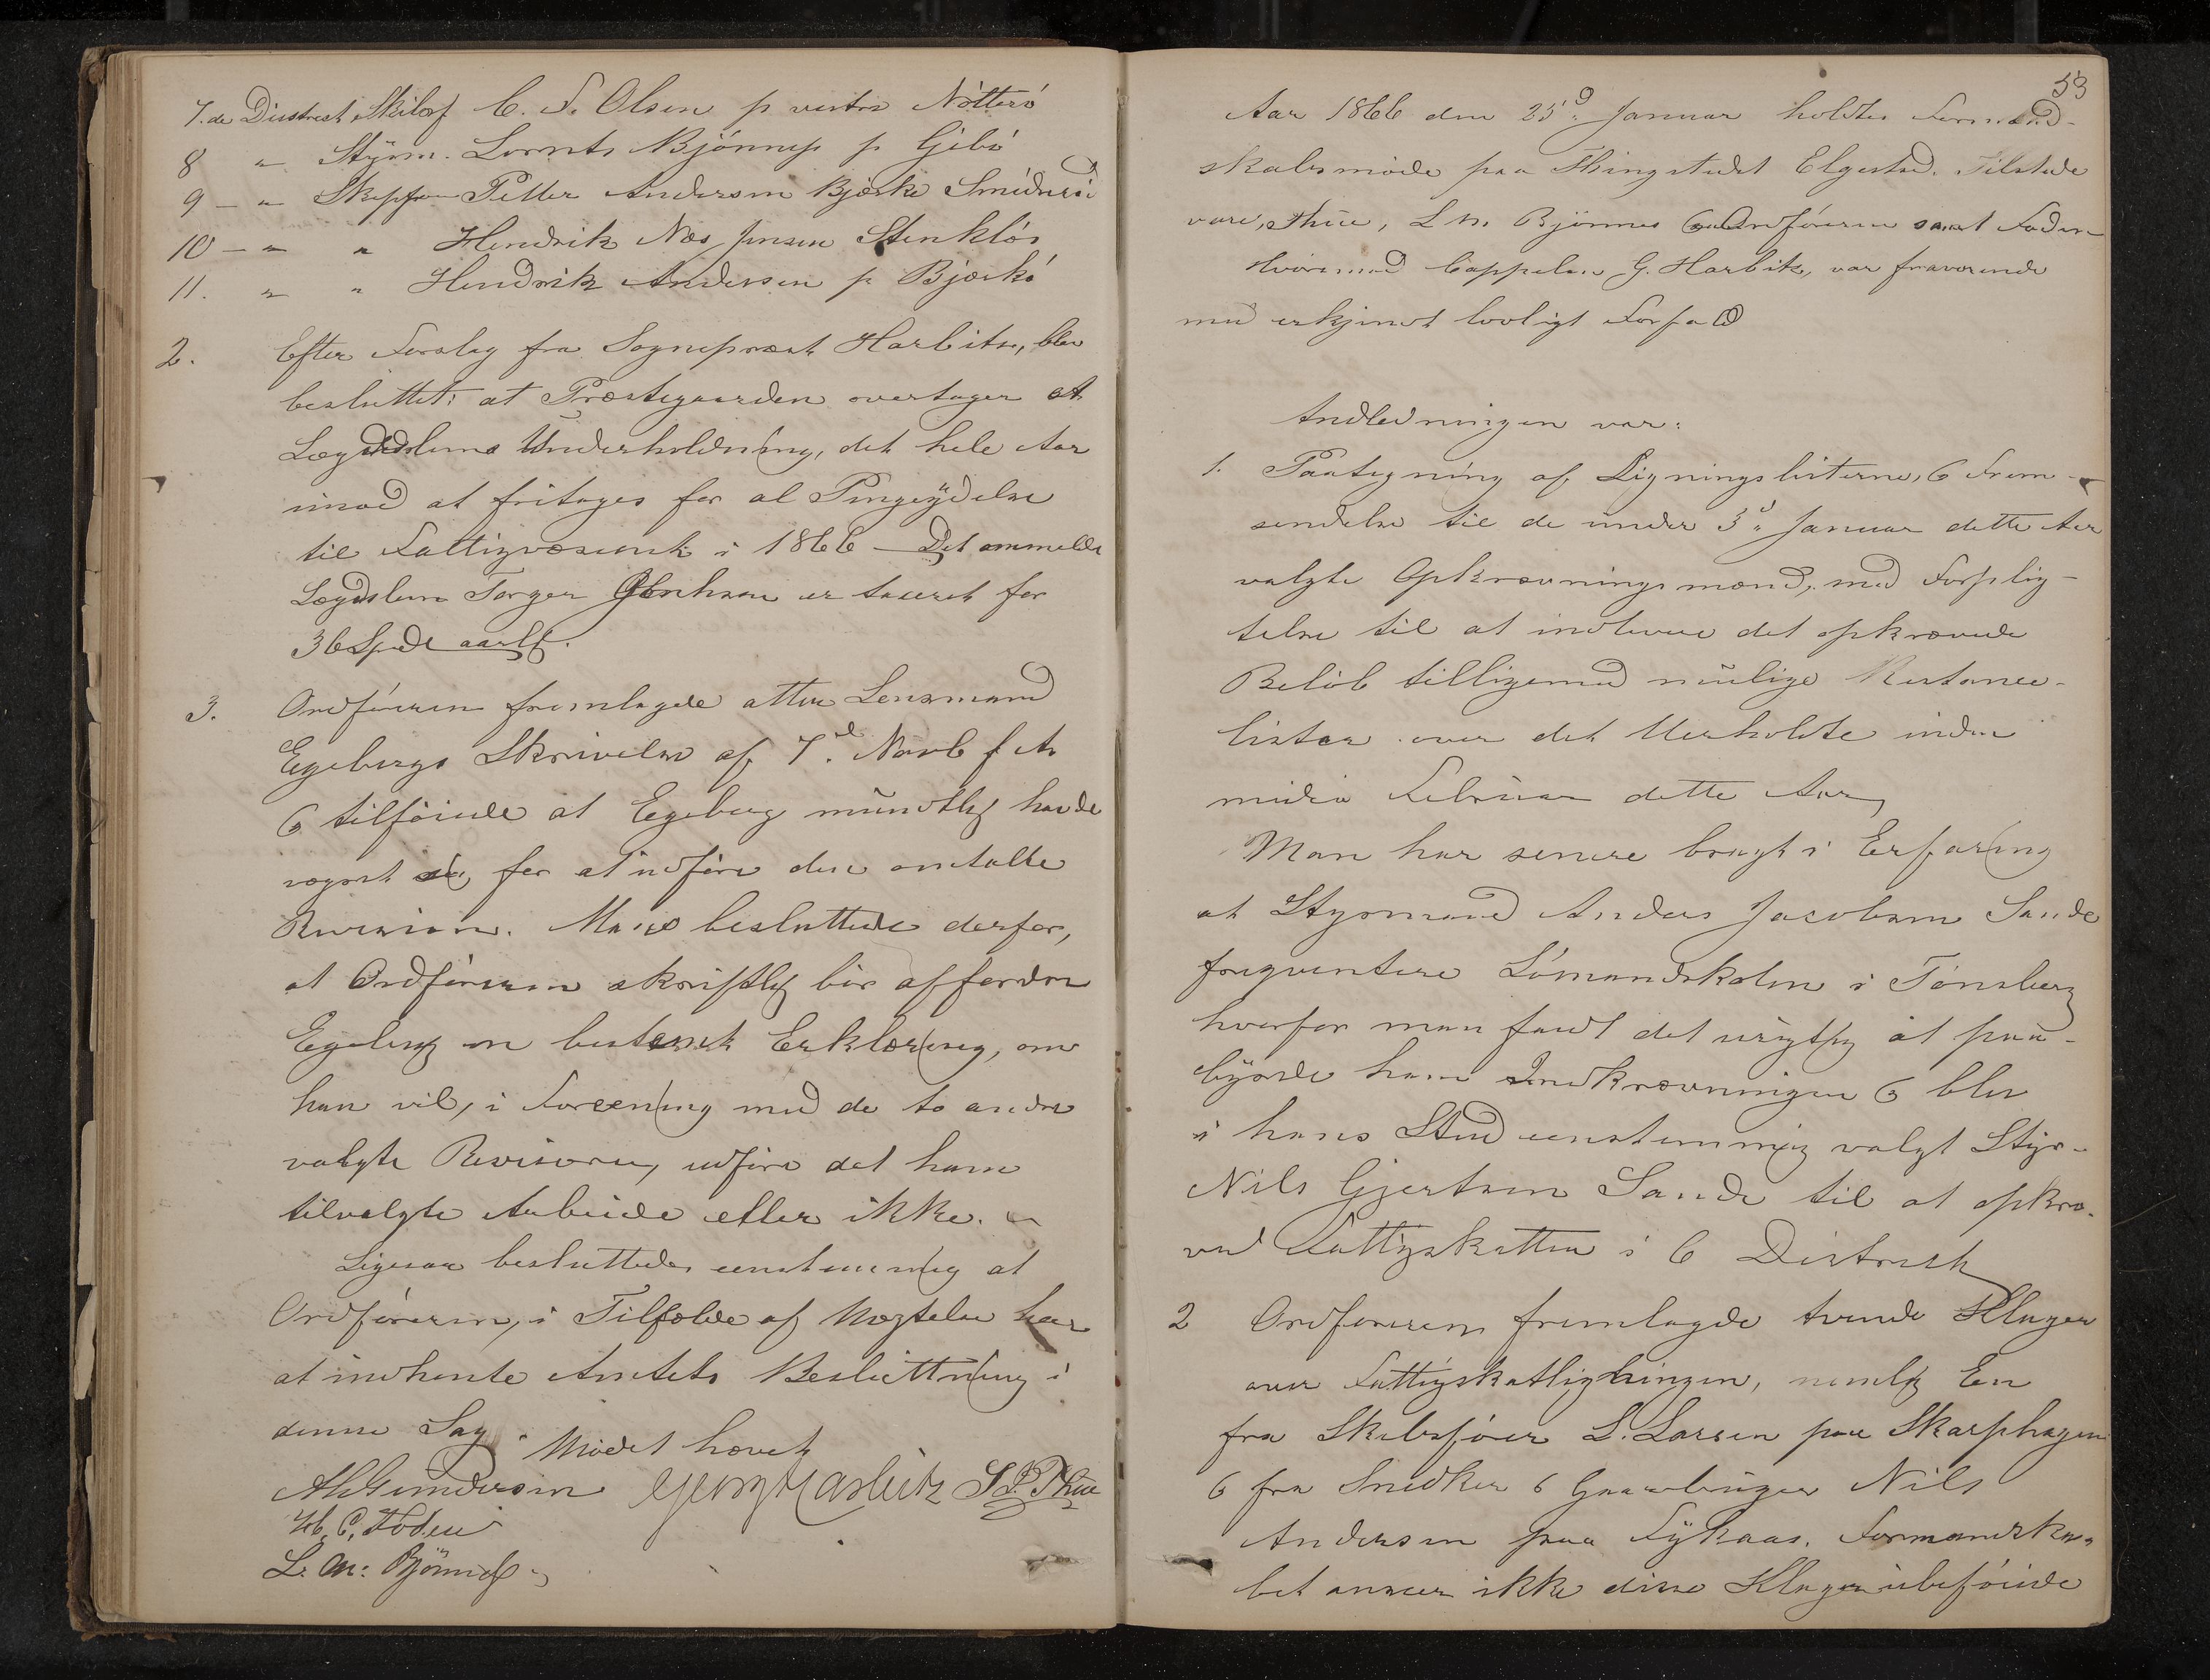 7.de District Skibsf C. F. Olsen p vestre Nötterö
8 " Styrm. Lornts Bjönnes p Gjibö
9 – " Skipper Petter Andersen Bjerke Smidsrö
10 – " " Hendrik Næs Jensen Stenklös
11. " " Hendrik Andersen p Bjerkö
2. Efter Forslag fra Sognepræst Harbitz, blev
besluttet: at Præstegaarden overtager et
Lægdslems Underholdning, det hele Aar
imod at fritages for al Pengeydelse
til Fattigvæsenet i 1866 – Det ommeldte
Lægdslem Torger Johnsen er taxeret for
36 Spd aarlig.
3. Ordföreren fremlagde atter Lensmand
Egebergs Skrivelse af 7.de Novb f A
& tilföiede at Egeberg mundtlig havde
vægret sig for at udföre den omtalte
Revision. Man besluttede derfor,
at Ordföreren skriftlig bör affordre
Egeberg en bestemt Erklæring, om
han vil, i Forening med de to andre
valgte Revisorer, udföre det ham
tilvalgte Arbeide eller ikke. –
Ligesaa besluttedes eenstemmig at
Ordföreren, i Tilfælde af Nægtelse har
at indhente Amtets Beslutning i
denne Sag. Mödet hævet
A Gundersen Georg Harbitz S. P. Thue
H. C. Foden
L. M. Bjönnes
53
Aar 1866 den 25d Januar holdtes Formand-
skabsmöde paa Thingstedet Elgestad. Tilstede
vare, Thue, L M. Bjönnes & Ordföreren samt Foden
Hvorimod Cappelen G. Harbitz, var fraværende
med erkjendt lovligt Forfald
Andledningen var:
1. Paategning af Ligningslisterne, & Frem-
sendelse til de under 3d Januar dette Aar
valgte Opkrævningsmænd, med Forplig-
telse til at indlevere det opkrævede
Belöb tilligemed mulige Restance-
lister over det Uerholdte inden
midio Februar dette Aar,
Man har senere bragt i Erfaring
at Styrmand Anders Jacobsen Sande
freqventere Sömandskolen i Tönsberg
hvorfor man fandt det urigtig at paa-
byrde ham Indkrævningen & blev
i hans Sted eenstemmig valgt Styr-
Nils Gjertsen Sande til at opkræ-
ve Fattigskatten i 6 District
2 Ordföreren fremlagde tvende Klager
over Fattigskatligningen, nemlig En
fra Skibsförer L. Larsen paa Skarphagen
& fra Snedker & Gaardbruger Nils
Andersen paa Fykaas. Formandska-
bet anseer ikke disse Klager ubeföiede